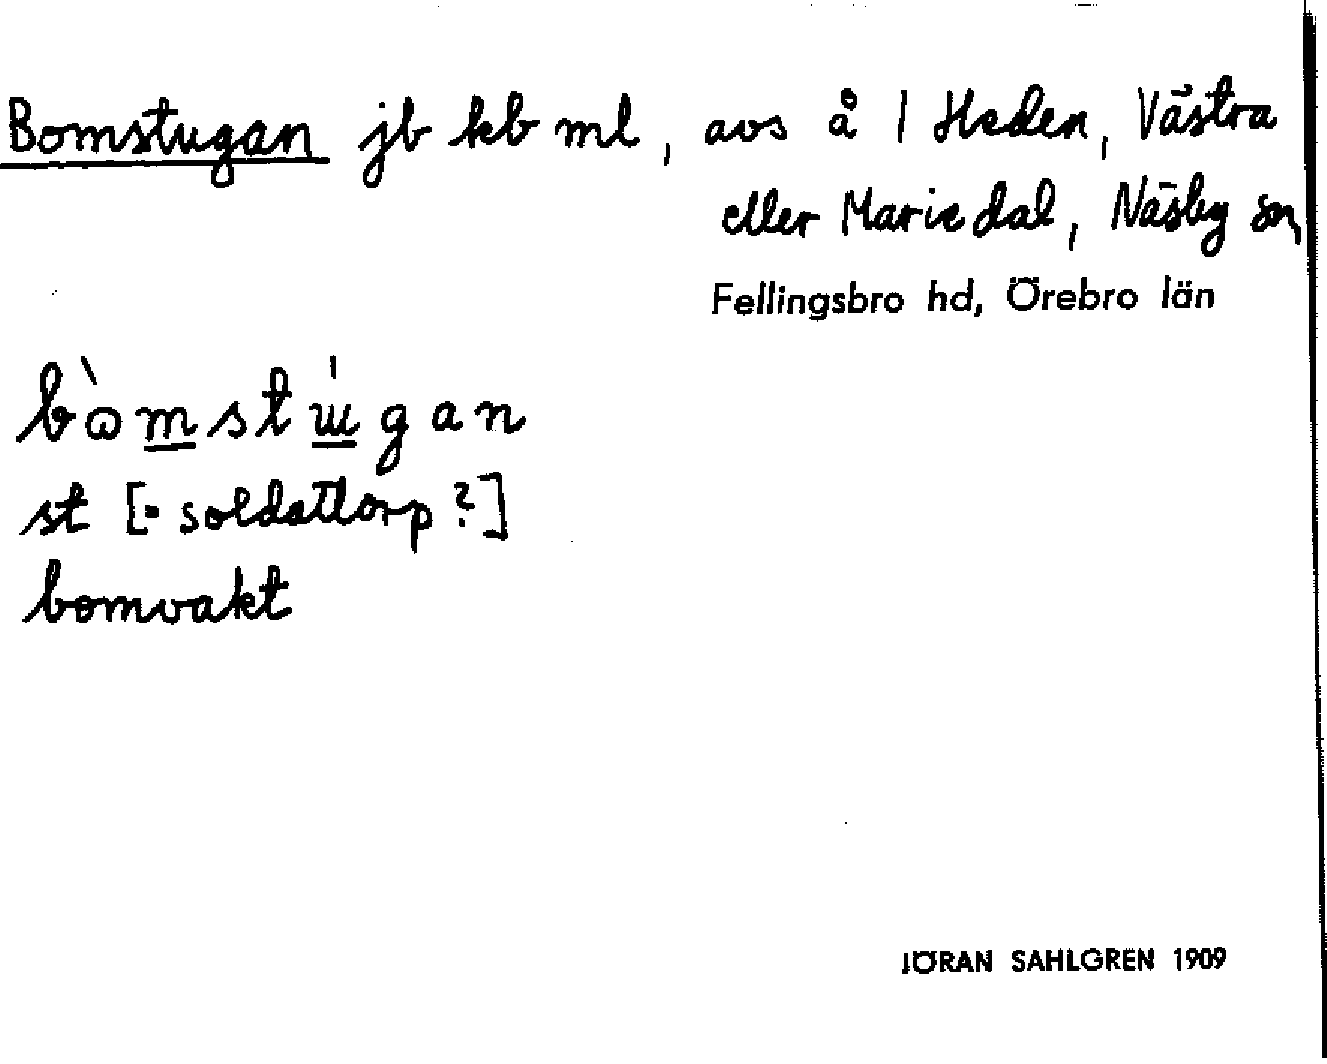 Bomstugan jb kb ml, avs å 1 Heden, Västra
eller Mariedal, Näsby sn
Fellingsbro hd, Örebro län
bòmstúgan
st [= soldattorp?]
bomvakt
JÖRAN SAHLGREN 1909